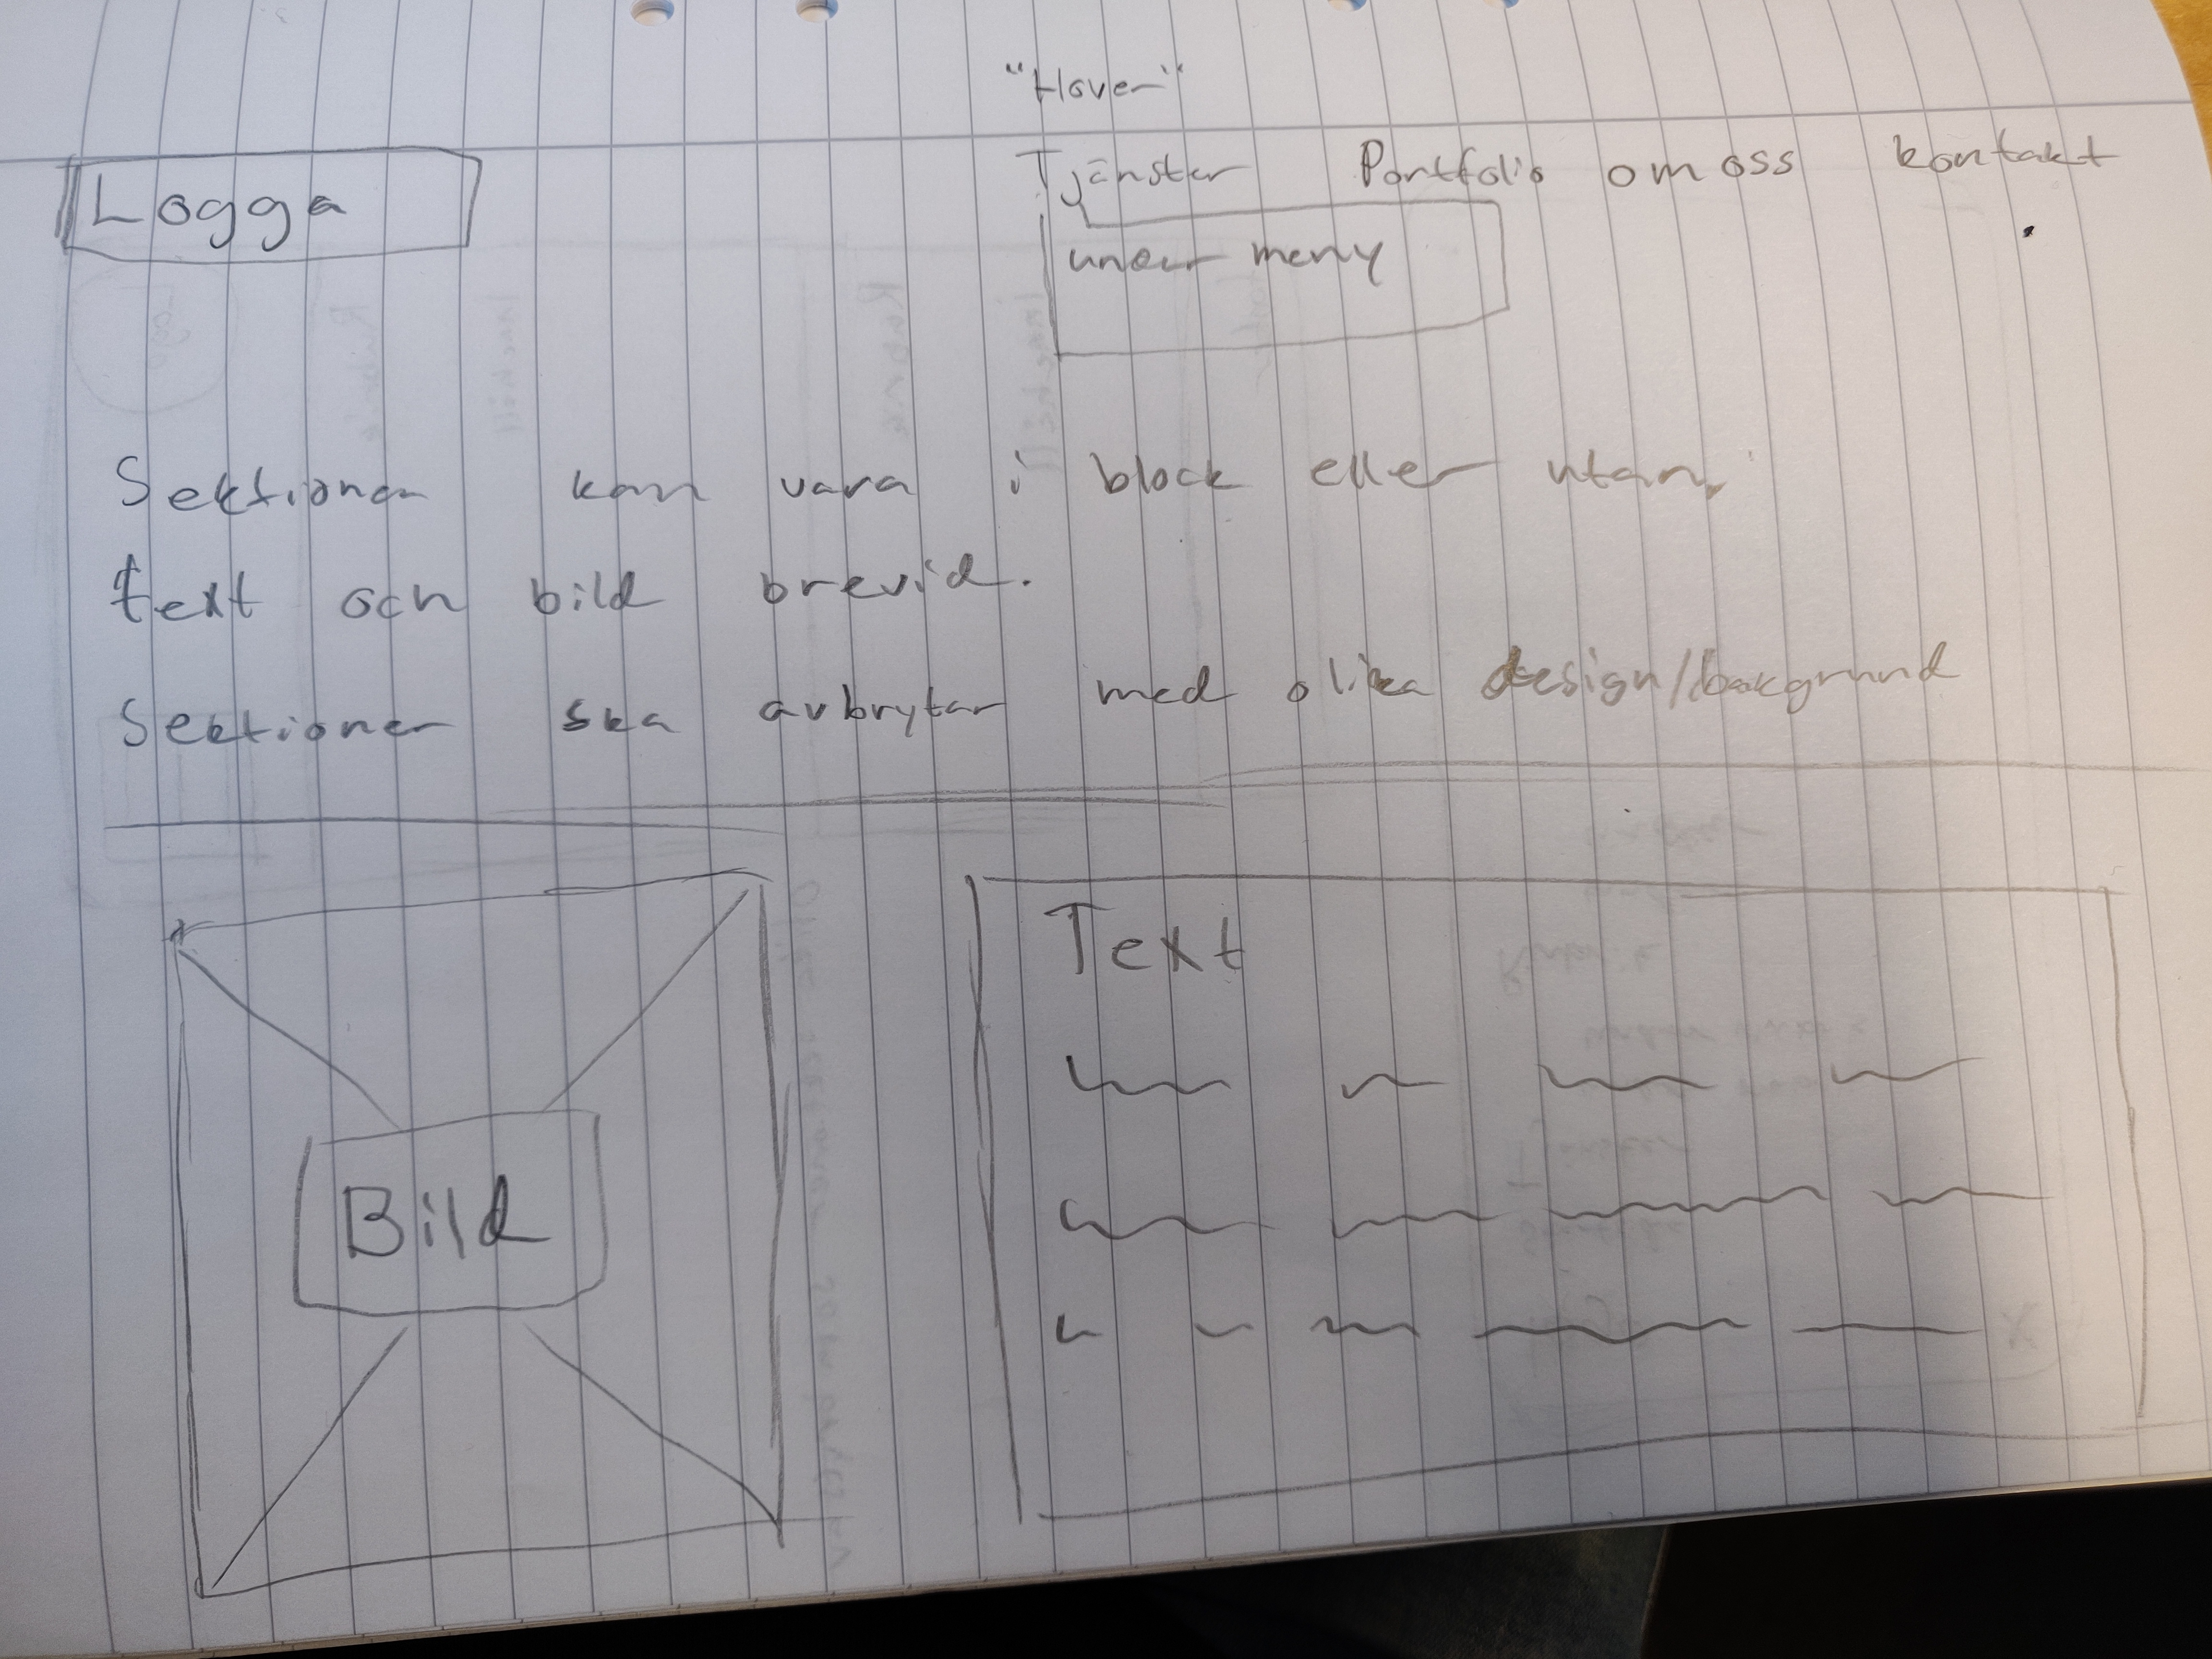 "Hover"
Logga Tjänster Portfolio om oss kontakt
under meny
Sektioner kan vara i block eller utan,
text och bild brevid.
Sektioner ska avbrytar med olika design/bakgrund
Bild
Text